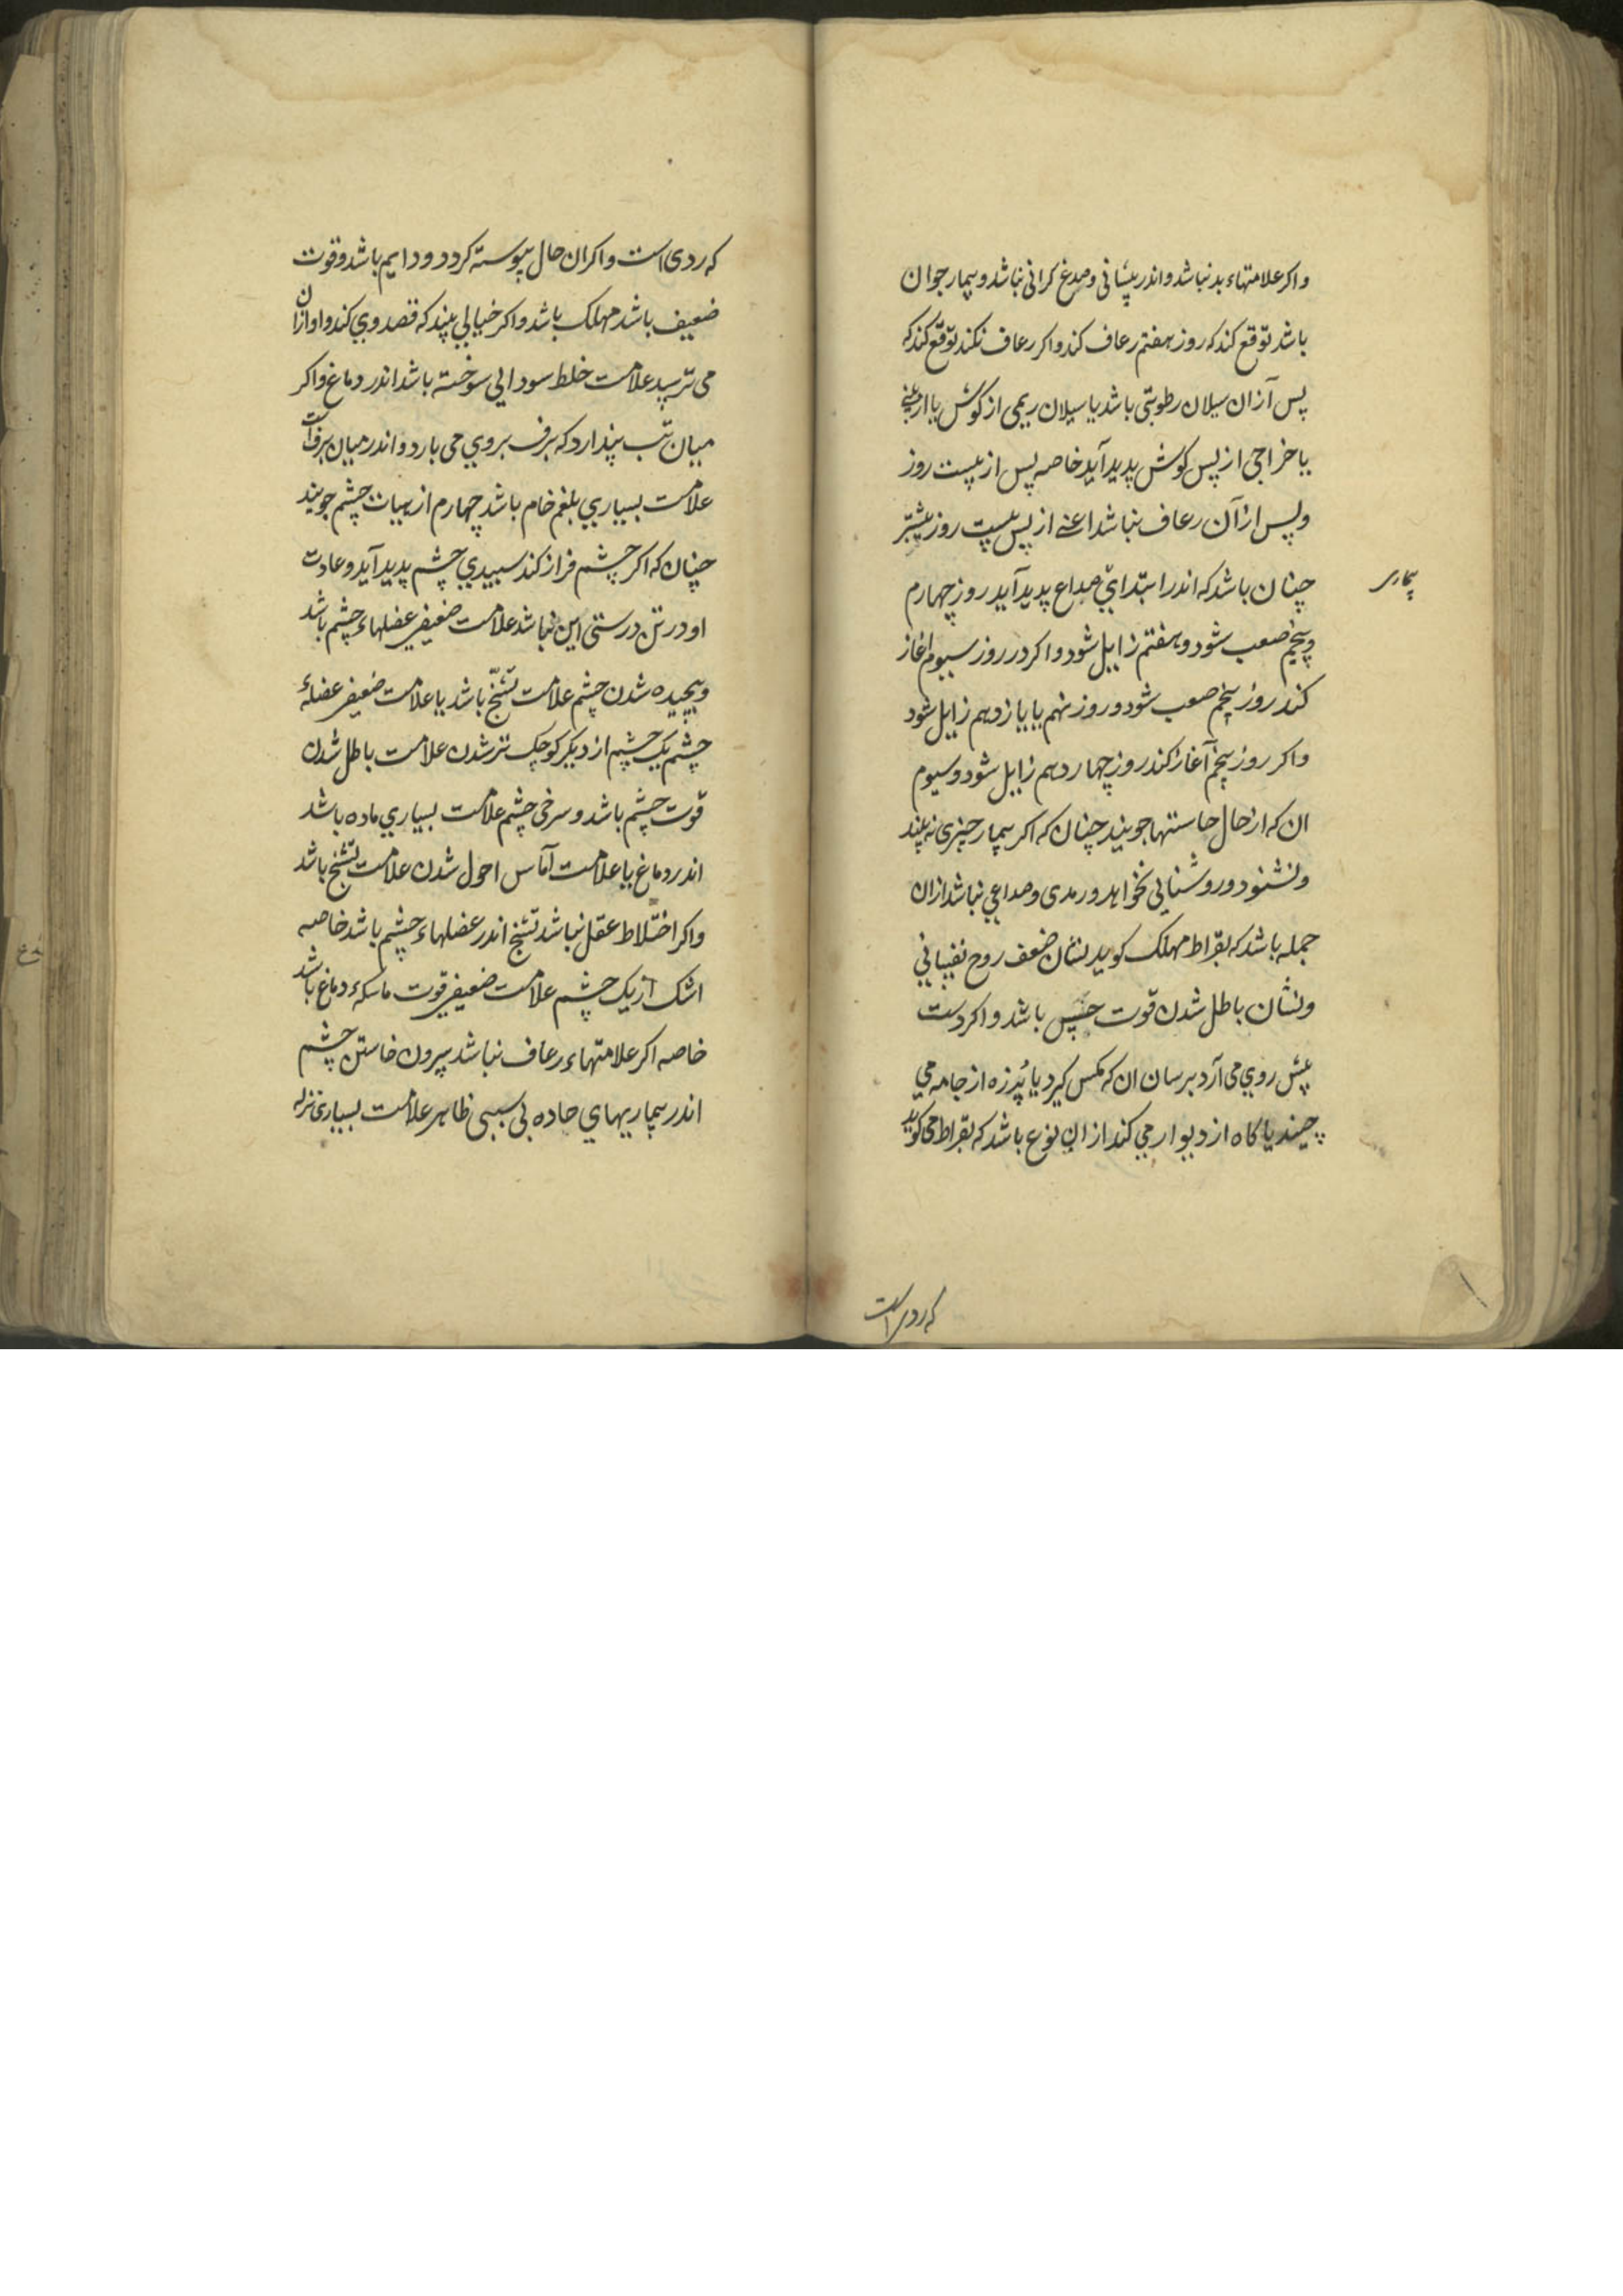 واکر علامتهاء بد نباشد و اندر پیشانی و صدغ کرانی نباشد و بیمار جوان
باشد توقع کند که روز هفتم رعاف کند واکر رعاف نکند توقع کند که
پس آزان سیلان رطوبتی باشد یا سیلان ریمی از کوش یا از بینی
یا خراجی از پس کوش پدید آید خاصه پس از بیست روز
و پس ازآن رعاف نباشد اعنے از پس بیست روز بیشتر
بیماری
چنان باشد که اندر ابتدای صداع پدید آید روز چهارم
و پنجم صعب شود و هفتم زایل شود واکر در روز سیوم اغاز
کند روز پنجم صعب شود و روز نهم یا یازدهم زایل شود
واکر روز پنجم آغاز کند روز چهاردهم زایل شود و سیوم
ان که از حال حاستها جویند چنان که اکر بیمار چیزی نه بیند
و نشنود و روشنایی نخواهد و رمدی و صداعی نباشد ازان
جمله باشد که بقراط مهلک کوید نشان ضعف روح نفسانی
و نشان باطل شدن قوت حس باشد و اکر دست
پیش روی می آرد برسان ان که مکس کیرد یا پُرزه از جامه می
چیند یا کاه از دیوار می کند ازان نوع باشد که بقراط می کوید
که ردی است
که ردی است واکر ان حال پیوسته کردد و دایم باشد و قوت
ضعیف باشد مهلک باشد واکر خیالی بیند که قصد وی کند و او ازان
می ترسد علامت خلط سودایی سوخته باشد اندر دماغ واکر
میان تب پندارد که برف بروی می بارد و اندر میان برف است
علامت بسیاری بلغم خام باشد چهارم از هیات چشم جویند
چنان که اکر چشم فراز کند سپیدی چشم پدید آید و عادت
او در تن درستی این نباشد علامت ضعیفی عضلهاء چشم باشد
و پیچیده شدن چشم علامت تشنّج باشد یا علامت ضعیفی عضلهٔ
چشم یک چشم از دیکر کوچک تر شدن علامت باطل شدن
قوت چشم باشد و سرخی چشم علامت بسیاری ماده باشد
اندر دماغ یا علامت آماس احول شدن علامت تشنج باشد
واکر اختلاط عقل نباشد تشنج اندر عضلهاء چشم باشد خاصه
اشک از یک چشم علامت ضعیفی قوت ماسکهٔ دماغ باشد
خاصه اکر علامتهاء رعاف نباشد بیرون خاستن چشم
اندر بیماریهای حاده بی سببی ظاهر علامت بسیاری نزله